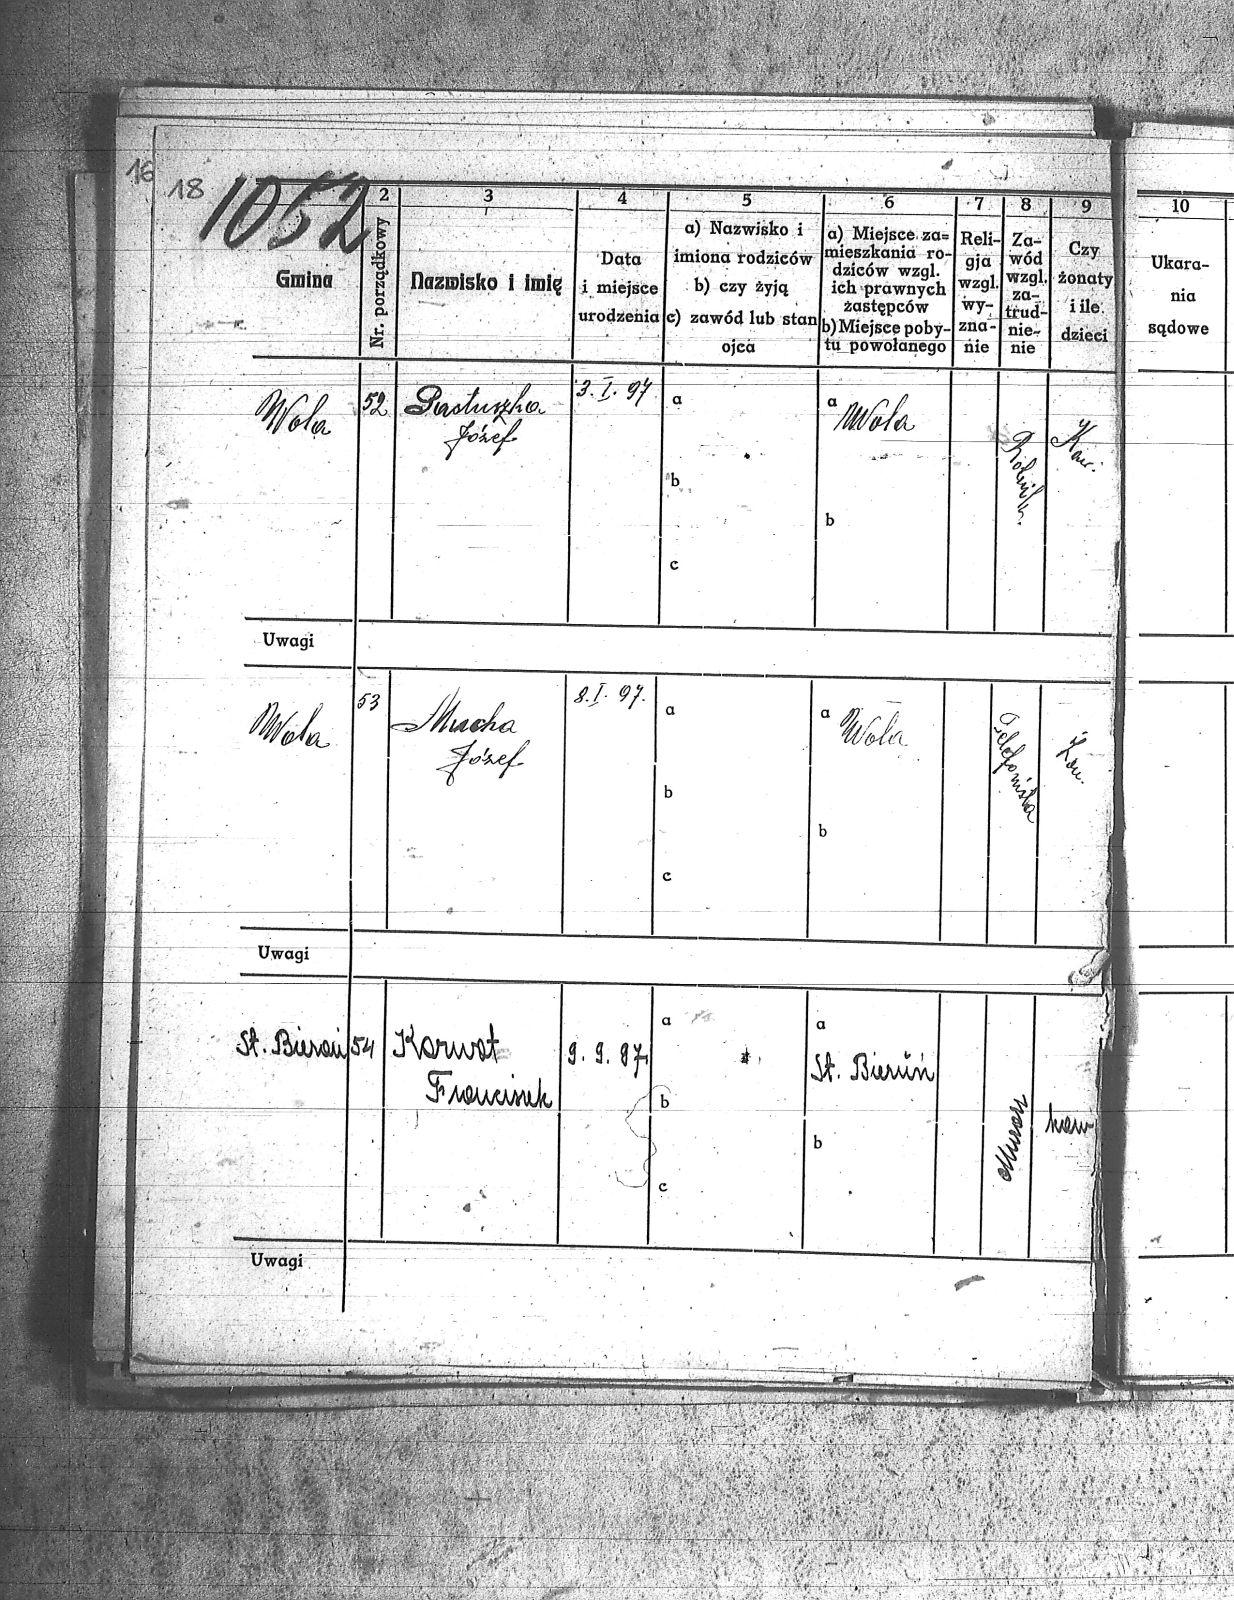 16
18
1052
Gmina
2
Nr. porządkowy
3
Nazwisko i imię
4
Data
i miejsce
urodzenia
5
a) Nazwisko i
imiona rodziców
b) czy żyją
c) zawód lub stan
ojca
6
a) Miejsce za=
mieszkania ro-
dziców wzgl.
ich prawnych
zastępców
b) Miejsce poby-
tu powołanego
7
Reli-
gja
wzgl.
wy-
zna-
nie
8
Za-
wód
wzgl.
za-
trud-
nie-
nie
9
Czy
żonaty
i ile
dzieci
10
Ukara-
nia
sądowe
Wola
52
Pastuszka
Józef
3. I. 97
a
b
c
a
Wola
b
Kaw.
Uwagi
Wola
53
Mucha
Józef
8. I. 97.
a
b
c
a
Wola
b
Telefonista
Uwagi
St. Bieruń
54
Karwot
Franciszek
9. 9. 97.
a
b
c
a
St. Bieruń
b
Murarz
kaw
Uwagi